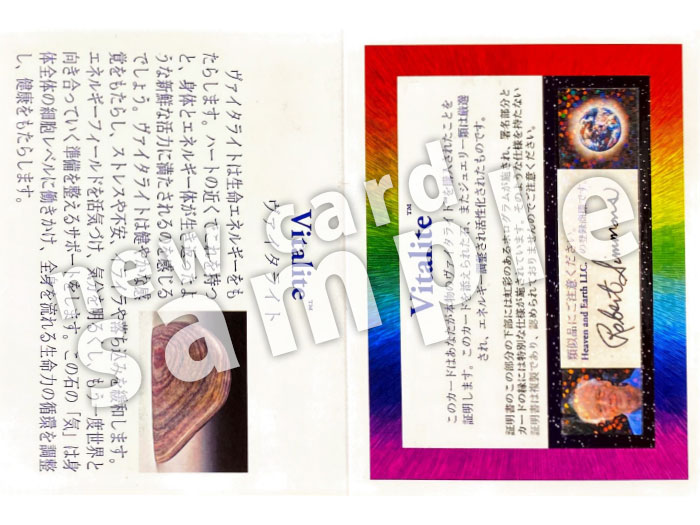 Vitalite™
ヴァイタライト
ヴァイタライトは生命エネルギーをも
たらします。ハートの近くでこれを持つ
と、身体とエネルギー体が生き
うな新鮮な活力に満たされるのを感じる
でしょう。ヴァイタライトは健やかな感
覚をもたらし、ストレスや不安、イライラや落ち込みを緩和します。
エネルギーフィールドを活気づけ、気分を明るくし、もう一度世界と
向き合っていく準備を整えるサポートをします。この石の「気」は身
体全体の細胞レベルに働きかけ、全身を流れる生命力の循環を調整
し、健康をもたらします。
Vitalite™
このカードはあなたが本物のヴァイタライトを購入されたことを
証明します。このカードを添えられた石、またジュエリー類は厳選
され、エネルギー調整され活性化されたものです。
証明書のこの部分の下部には虹彩のあるホログラムが施され、署名部分と
カードの縁には特別な仕様が施されています。そのような仕様を持たない
証明書は複製であり、認められておりませんのでご注意ください。
類似品にご注意ください。
Heaven and Earth LLC. の登録商標です。
Robert Simmons
card
sample